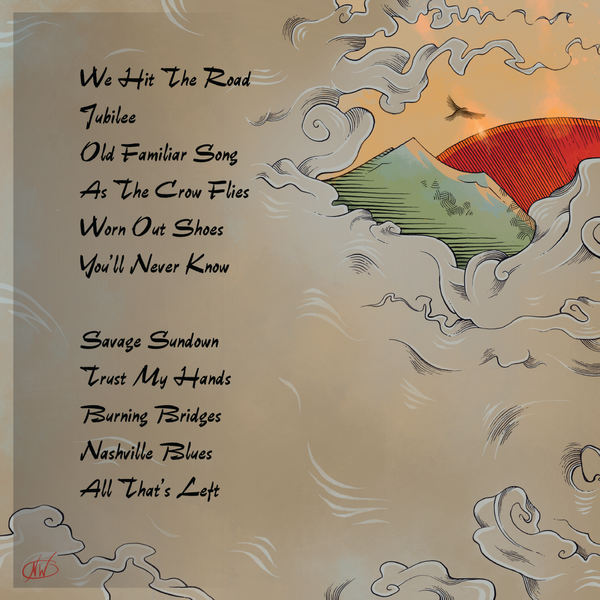 We Hit The Road
Jubilee
Old Familiar Song
As The Crow Flies
Worn Out Shoes
You'll Never Know
Savage Sundown
Trust My Hands
Burning Bridges
Nashville Blues
All That's Left